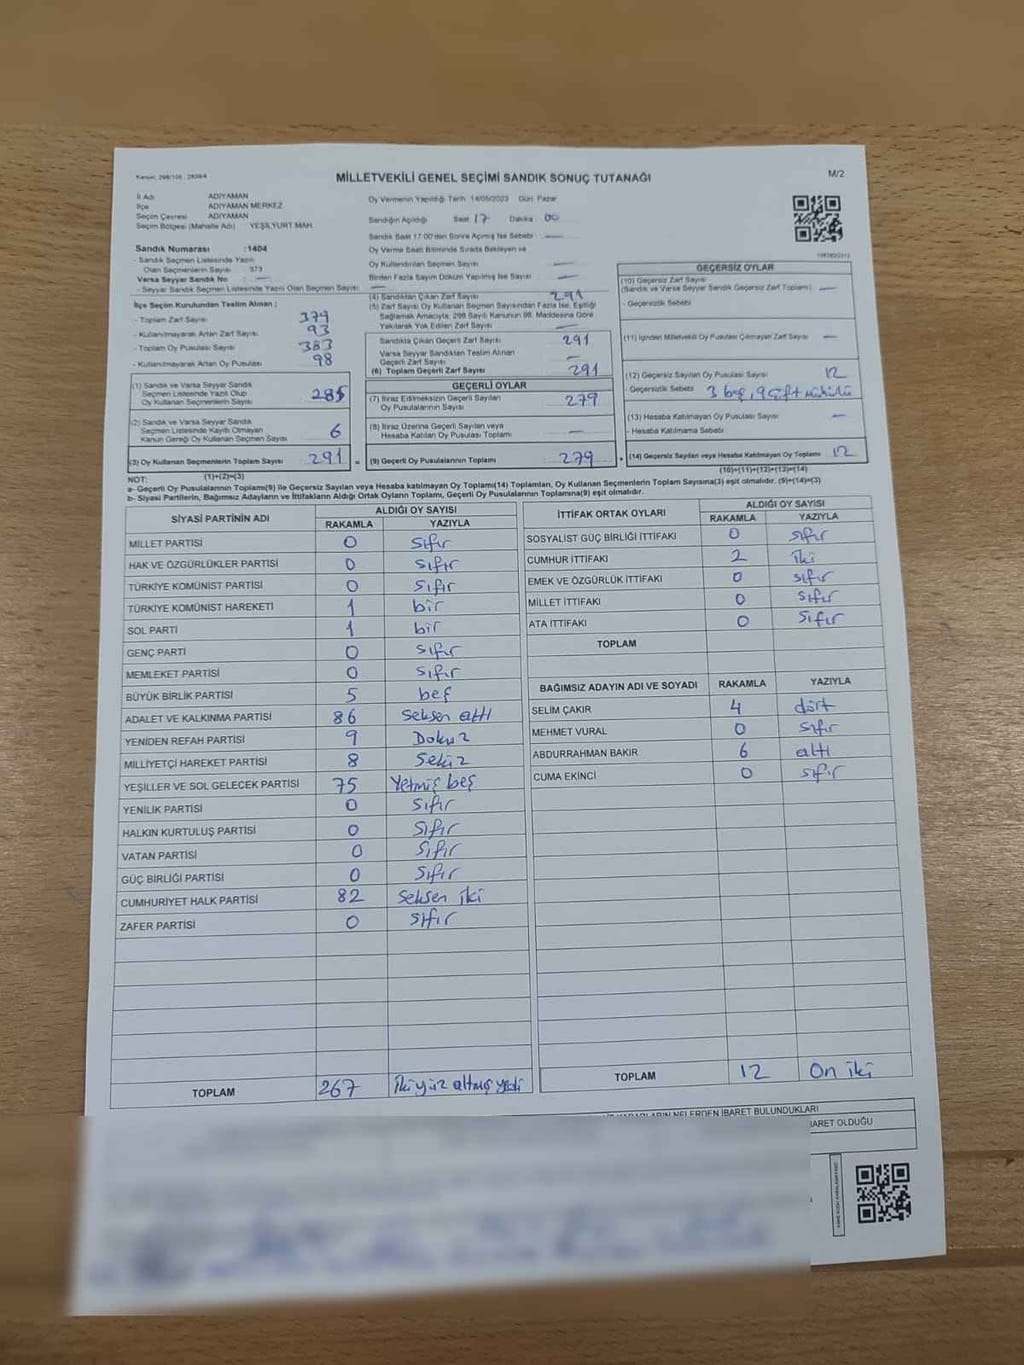 Kanun: 298/105 , 2839/4
MİLLETVEKİLİ GENEL SEÇİMİ SANDIK SONUÇ TUTANAĞI
M/2
İl Adı ADIYAMAN
İlçe ADIYAMAN MERKEZ
Seçim Çevresi ADIYAMAN
Seçim Bölgesi (Mahalle Adı) YEŞİLYURT MAH.
Sandık Numarası :1404
- Sandık Seçmen Listesinde Yazılı
Olan Seçmenlerin Sayısı 373
Varsa Seyyar Sandık No : —
- Seyyar Sandık Seçmen Listesinde Yazılı Olan Seçmen Sayısı: —
İlçe Seçim Kurulundan Teslim Alınan ;
- Toplam Zarf Sayısı 379
- Kullanılmayarak Artan Zarf Sayısı 93
- Toplam Oy Pusulası Sayısı 383
- Kullanılmayarak Artan Oy Pusulası 98
(1) Sandık ve Varsa Seyyar Sandık
Seçmen Listesinde Yazılı Olup
Oy Kullanan Seçmenlerin Sayısı 285
(2) Sandık ve Varsa Seyyar Sandık
Seçmen Listesinde Kayıtlı Olmayan
Kanun Gereği Oy Kullanan Seçmen Sayısı 6
(3) Oy Kullanan Seçmenlerin Toplam Sayısı : 291
(1)+(2)=(3)
Oy Vermenin Yapıldığı Tarih 14/05/2023 Gün Pazar
Sandığın Açıldığı Saat 17 Dakika 00
Sandık Saat 17:00'den Sonra Açılmış İse Sebebi —
Oy Verme Saati Bitiminde Sırada Bekleyen ve
Oy Kullandırılan Seçmen Sayısı —
Birden Fazla Sayım Döküm Yapılmış İse Sayısı —
(4) Sandıktan Çıkan Zarf Sayısı 291
(5) Zarf Sayısı Oy Kullanan Seçmen Sayısından Fazla İse, Eşitliği
Sağlamak Amacıyla, 298 Sayılı Kanunun 98. Maddesine Göre
Yakılarak Yok Edilen Zarf Sayısı —
Sandıkta Çıkan Geçerli Zarf Sayısı 291
Varsa Seyyar Sandıktan Teslim Alınan
Geçerli Zarf Sayısı —
(6) Toplam Geçerli Zarf Sayısı 291
GEÇERLİ OYLAR
(7) İtiraz Edilmeksizin Geçerli Sayılan
Oy Pusulalarının Sayısı 279
(8) İtiraz Üzerine Geçerli Sayılan veya
Hesaba Katılan Oy Pusulası Toplamı —
= (9) Geçerli Oy Pusulalarının Toplamı 279
GEÇERSİZ OYLAR
(10) Geçersiz Zarf Sayısı
(Sandık ve Varsa Seyyar Sandık Geçersiz Zarf Toplamı) —
- Geçersizlik Sebebi
(11) İçinden Milletvekili Oy Pusulası Çıkmayan Zarf Sayısı —
(12) Geçersiz Sayılan Oy Pusulası Sayısı 12
- Geçersizlik Sebebi 3 boş, 9 çift mühürlü
(13) Hesaba Katılmayan Oy Pusulası Sayısı —
- Hesaba Katılmama Sebebi
+ (14) Geçersiz Sayılan veya Hesaba Katılmayan Oy Toplamı 12
(10)+(11)+(12)+(13)=(14)
NOT:
a- Geçerli Oy Pusulalarının Toplamı(9) ile Geçersiz Sayılan veya Hesaba katılmayan Oy Toplamı(14) Toplamları, Oy Kullanan Seçmenlerin Toplam Sayısına(3) eşit olmalıdır. (9)+(14)=(3)
b- Siyasi Partilerin, Bağımsız Adayların ve İttifakların Aldığı Ortak Oyların Toplamı, Geçerli Oy Pusulalarının Toplamına(9) eşit olmalıdır.
SİYASİ PARTİNİN ADI ALDIĞI OY SAYISI
RAKAMLA YAZIYLA
MİLLET PARTİSİ 0 sıfır
HAK VE ÖZGÜRLÜKLER PARTİSİ 0 sıfır
TÜRKİYE KOMÜNİST PARTİSİ 0 sıfır
TÜRKİYE KOMÜNİST HAREKETİ 1 bir
SOL PARTİ 1 bir
GENÇ PARTİ 0 sıfır
MEMLEKET PARTİSİ 0 sıfır
BÜYÜK BİRLİK PARTİSİ 5 beş
ADALET VE KALKINMA PARTİSİ 86 seksen altı
YENİDEN REFAH PARTİSİ 9 Dokuz
MİLLİYETÇİ HAREKET PARTİSİ 8 Sekiz
YEŞİLLER VE SOL GELECEK PARTİSİ 75 Yetmiş beş
YENİLİK PARTİSİ 0 sıfır
HALKIN KURTULUŞ PARTİSİ 0 sıfır
VATAN PARTİSİ 0 sıfır
GÜÇ BİRLİĞİ PARTİSİ 0 sıfır
CUMHURİYET HALK PARTİSİ 82 Seksen iki
ZAFER PARTİSİ 0 sıfır
TOPLAM 267 ikiyüz altmış yedi
İTTİFAK ORTAK OYLARI ALDIĞI OY SAYISI
RAKAMLA YAZIYLA
SOSYALİST GÜÇ BİRLİĞİ İTTİFAKI 0 sıfır
CUMHUR İTTİFAKI 2 iki
EMEK VE ÖZGÜRLÜK İTTİFAKI 0 sıfır
MİLLET İTTİFAKI 0 sıfır
ATA İTTİFAKI 0 sıfır
TOPLAM
BAĞIMSIZ ADAYIN ADI VE SOYADI RAKAMLA YAZIYLA
SELİM ÇAKIR 4 dört
MEHMET VURAL 0 sıfır
ABDURRAHMAN BAKIR 6 altı
CUMA EKİNCİ 0 sıfır
TOPLAM 12 On iki
NELERDEN İBARET BULUNDUKLARI
İBARET OLDUĞU